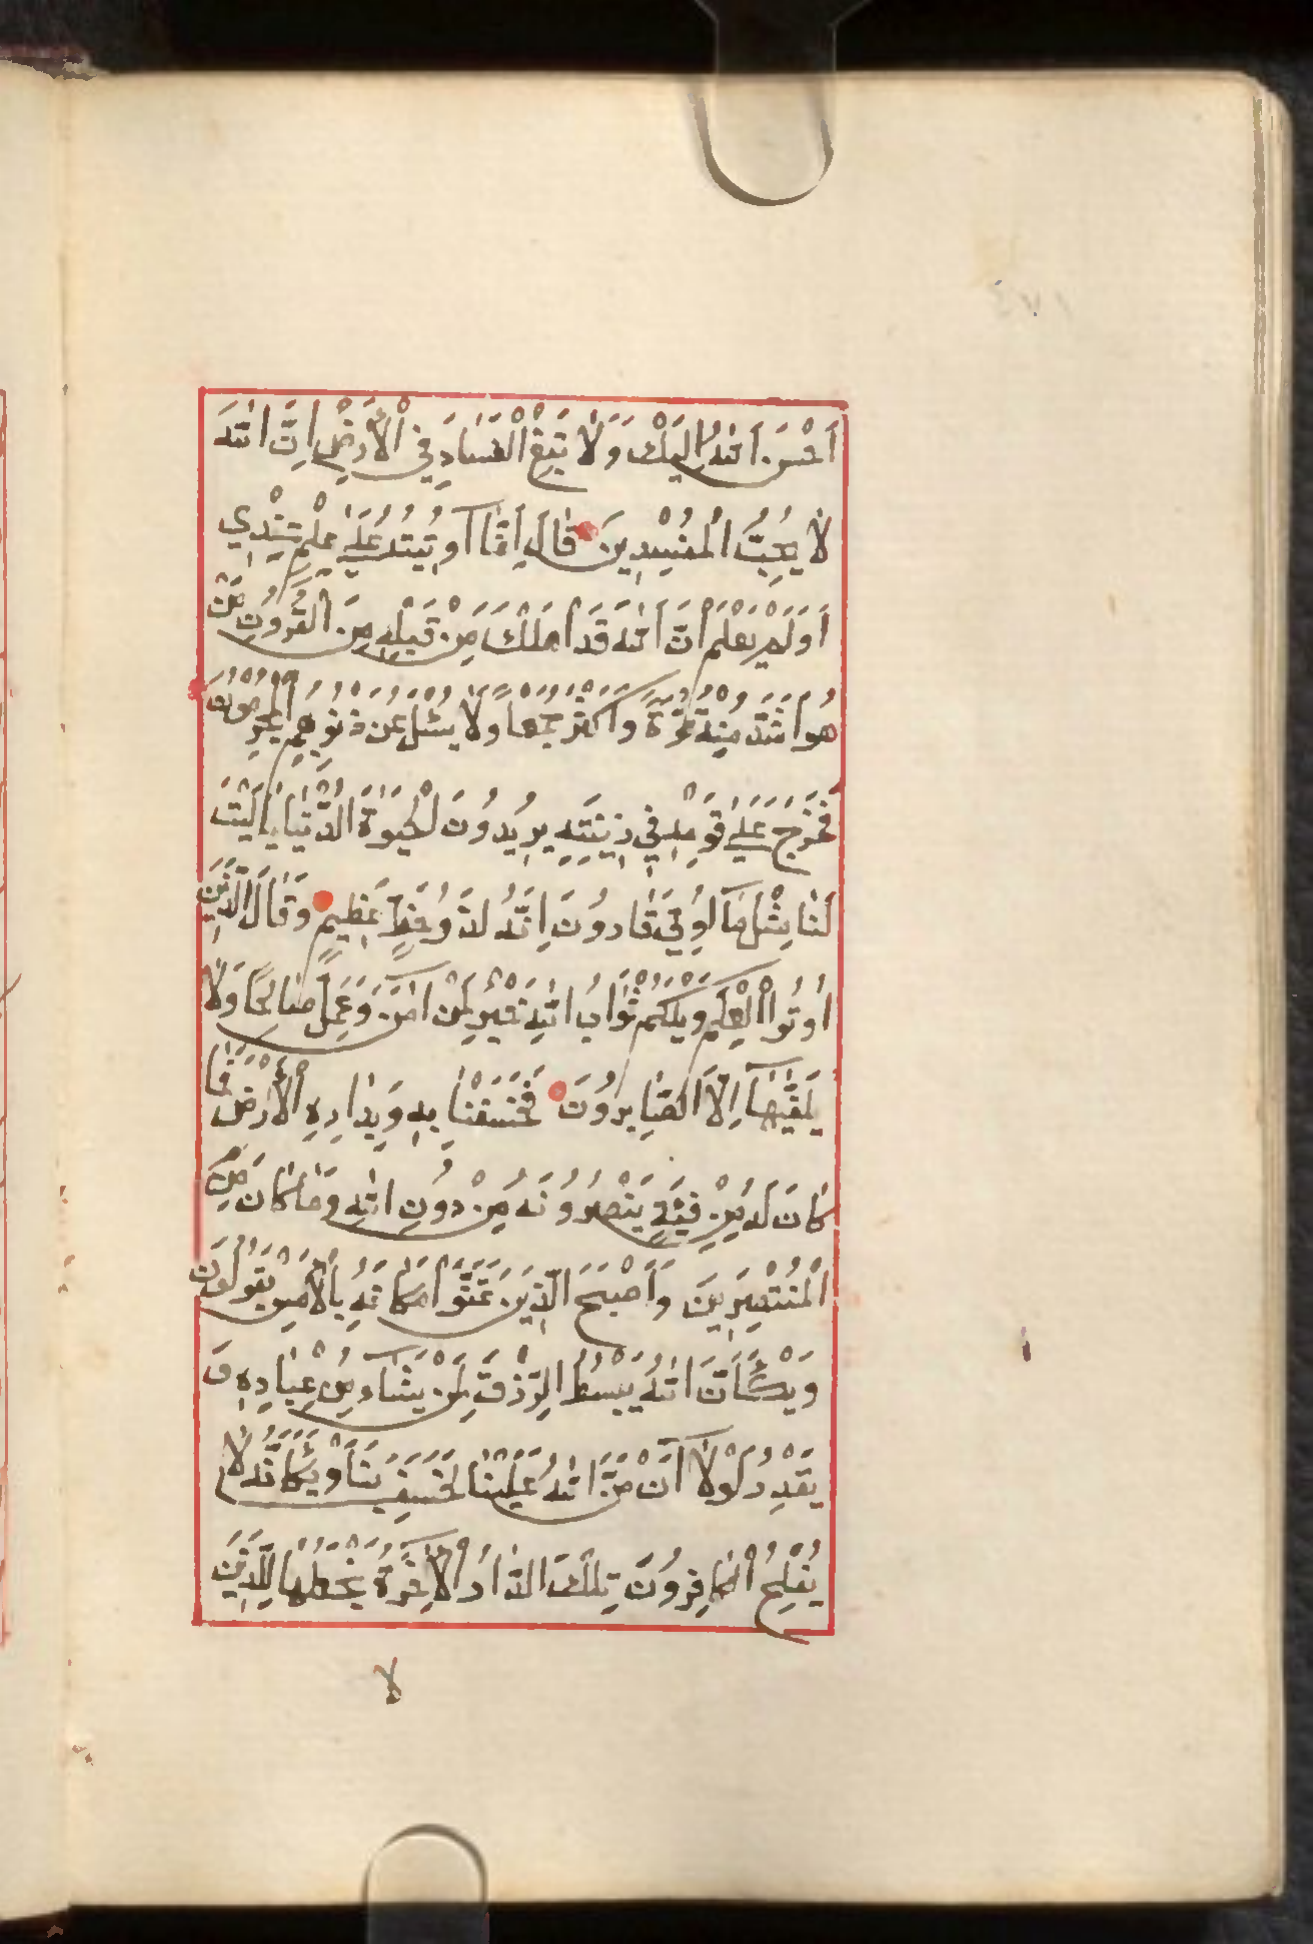 اَحْسَنَ اَللّٰهُ اِلَيْكَ وَلَا تَبْغِ الْفَسَادَ فِي الْاَرْضِ اِنَّ اللّٰهَ
لَا يُحِبُّ الْمُفْسِدِينَ قَالَ اِنَّمَا اُوتِيتُهُ عَلٰى عِلْمٍ عِنْدِي
اَوَلَمْ يَعْلَمْ اَنَّ اللّٰهَ قَدْ اَهْلَكَ مِنْ قَبْلِهِ مِنَ الْقُرُونِ مَنْ
هُوَ اَشَدُّ مِنْهُ قُوَّةً وَاَكْثَرُ جَمْعًا وَلَا يُسْئَلُ عَنْ ذُنُوبِهِمُ الْمُجْرِمُونَ
فَخَرَجَ عَلٰى قَوْمِهِ فِي زِينَتِهِ يُرِيدُونَ الْحَيٰوةَ الدُّنْيَا يَا لَيْتَ
لَنَا مِثْلَ مَا اُوتِيَ قَارُونَ اِنَّهُ لَذُو حَظٍّ عَظِيمٍ وَقَالَ الَّذِينَ
اُوتُوا الْعِلْمَ وَيْلَكُمْ ثَوَابُ اللّٰهِ خَيْرٌ لِمَنْ اٰمَنَ وَعَمِلَ صَالِحًا وَلَا
يُلَقّٰيهَا اِلَّا الصَّابِرُونَ فَخَسَفْنَا بِهِ وَبِدَارِهِ الْاَرْضَ فَمَا
كَانَ لَهُ مِنْ فِئَةٍ يَنْصُرُونَهُ مِنْ دُونِ اللّٰهِ وَمَا كَانَ مِنَ
الْمُنْتَصِرِينَ وَاَصْبَحَ الَّذِينَ تَمَنَّوْا مَكَانَهُ بِالْاَمْسِ يَقُولُونَ
وَيْكَاَنَّ اللّٰهَ يَبْسُطُ الرِّزْقَ لِمَنْ يَشَاءُ مِنْ عِبَادِهِ وَ
يَقْدِرُ لَوْلَا اَنْ مَنَّ اللّٰهُ عَلَيْنَا لَخَسَفَ بِنَا وَيْكَاَنَّهُ لَا
يُفْلِحُ الْكَافِرُونَ تِلْكَ الدَّارُ الْاٰخِرَةُ نَجْعَلُهَا لِلَّذِينَ
لا